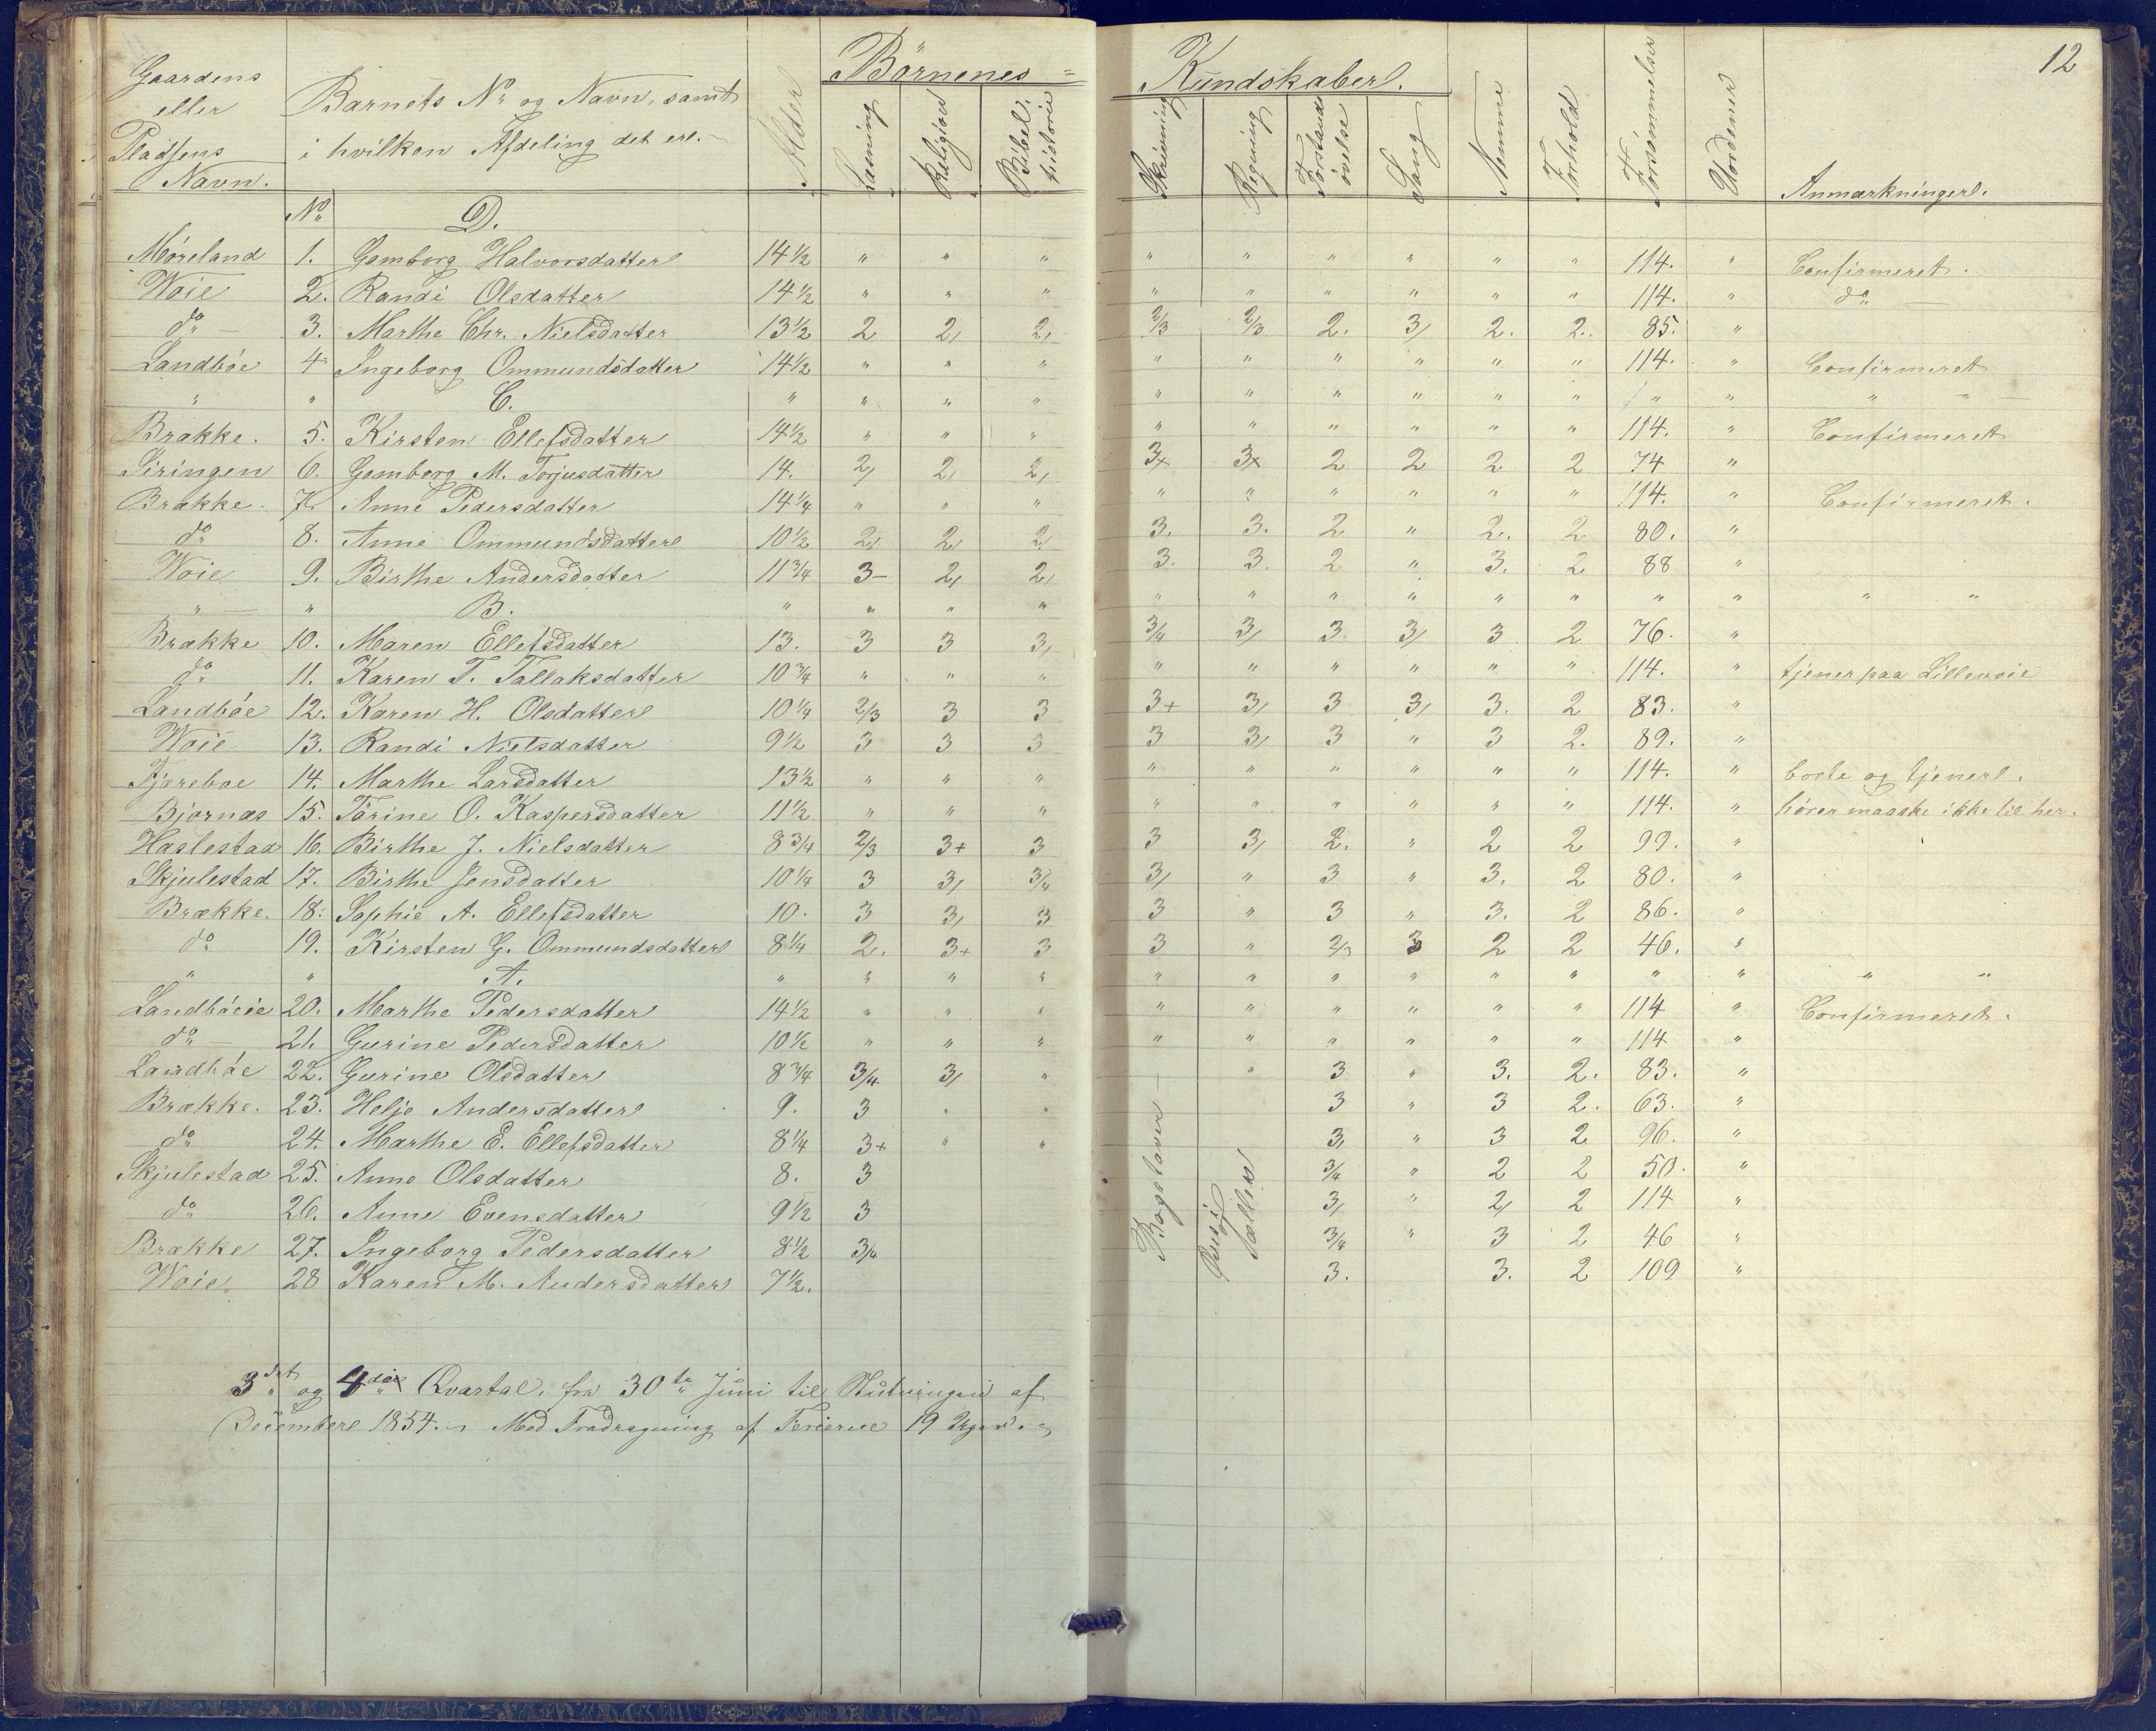 12
Gaardens eller Pladsens Navn. | Barnets No og Navn, samt i hvilken Afdeling det er. | Alder | Börnenes= Kundskaber. | Anmærkninger.
Læsning | Religion | Bibelhistorie | Skrivning | Regning | Forstandsøvelse | Sang | Nemme | Forhold | Forsømmelser | Uordener
No | D.
Møreland | 1. | Gemborg Halvorsdatter | 14½ | " | " | " | " | " | " | " | " | " | 114. | " | Confirmeret.
Woie | 2. | Randi Olsdatter | 14½ | " | " | " | " | " | " | " | " | " | 114. | " | do —
do — | 3. | Marthe Chr. Nielsdatter | 13½ | 2 | 2, | 2, | 2/3 | 2/3 | 2. | 3, | 2. | 2. | 85. | "
Landböe | 4 | Ingeborg Ommundsdatter | 14½ | " | " | " | " | " | " | " | " | " | 114. | " | Confirmeret
" | " | C. | " | " | " | " | " | " | " | " | " | " | " | " | " "
Brække. | 5. | Kirsten Ellefsdatter | 14½ | " | " | " | " | " | " | " | " | " | 114. | " | Confirmeret
Siringen | 6. | Gemborg M. Torjusdatter | 14. | 2, | 2, | 2, | 3+ | 3+ | 2 | 2 | 2 | 2 | 74 | "
Brække. | 7. | Anne Pedersdatter | 14¼ | " | " | " | " | " | " | " | " | " | 114. | " | Confirmeret.
do | 8. | Anne Ommundsdatter | 10½ | 2, | 2, | 2, | 3. | 3. | 2 | " | 2. | 2 | 80. | "
Woie | 9. | Birthe Andersdatter | 11¾ | 3- | 2, | 2, | 3. | 3. | 2 | " | 3. | 2 | 88 | "
" — | " | B. | " | " | " | " | " | " | " | " | " | " | " | " | " "
Brække | 10. | Maren Ellefsdatter | 13. | 3 | 3 | 3, | 3/4 | 3, | 3 | 3, | 3 | 2 | 76. | "
do | 11. | Karen T. Tallaksdatter | 10¾ | " | " | " | " | " | " | " | " | " | 114. | " | tjener paa Lillewoie
Landböe | 12. | Karen H. Olsdatter | 10¼ | 2/3 | 3 | 3 | 3+ | 3, | 3 | 3, | 3. | 2 | 83. | "
Woie | 13. | Randi Nielsdatter | 9½ | 3 | 3 | 3 | 3 | 3, | 3 | " | 3 | 2. | 89. | "
Tjereboe | 14. | Marthe Larsdatter | 13½ | " | " | " | " | " | " | " | " | " | 114. | " | borte og tjener.
Bjornæs | 15. | Tarine O. Kaspersdatter | 11½ | " | " | " | " | " | " | " | " | " | 114. | " | hører maaske ikke til her.
Haslestad | 16. | Birthe J. Nielsdatter | 8¾ | 2/3 | 3+ | 3 | 3 | 3, | 2. | " | 2 | 2 | 99. | "
Skjulestad | 17. | Birthe Jensdatter | 10¼ | 3 | 3, | 3/4 | 3, | " | 3 | " | 3. | 2 | 80. | "
Brække. | 18. | Sophie A. Ellefsdatter | 10. | 3 | 3, | 3 | 3 | " | 3 | " | 3. | 2 | 86. | "
do | 19. | Kirsten G. Ommundsdatter | 8¼ | 2. | 3+ | 3 | 3 | " | 2/3 | 3 | 2 | 2 | 46. | "
" | " | A. | " | " | " | " | " | " | " | " | " | " | " | " | " "
Landböeie | 20. | Marthe Pedersdatter | 14½ | " | " | " | " | " | " | " | " | " | 114 | " | Confirmeret.
do — | 21. | Gurine Pedersdatter | 10½ | " | " | " | " | " | " | " | " | " | 114 | "
Landböe | 22. | Gurine Olsdatter | 8¾ | 3/4 | 3, | " | Bogstaver — | " | 3 | " | 3. | 2. | 83. | "
Brække. | 23. | Helje Andersdatter | 9. | 3 | " | " | 3 | " | 3 | 2. | 63. | "
do | 24. | Marthe E. Ellefsdatter | 8¼ | 3+ | " | " | 3, | " | 3 | 2 | 96. | "
Skjulestad | 25. | Anne Olsdatter | 8. | 3 | 3/4 | " | 2 | 2 | 50. | "
do | 26. | Anne Evensdatter | 9½ | 3 | 3, | " | 2, | 2 | 114 | "
Brække | 27. | Ingeborg Pedersdatter | 8½ | 3/4 | 3/4 | " | 3 | 2 | 46 | "
Woie | 28 | Karen M. Andersdatter | 7½. | 3. | 3. | 2 | 109 | "
3die og 4de Qvartal, fra 30te Juni til Slutningen af
December 1854. Med Fradragning af Ferierne 19 Uger.